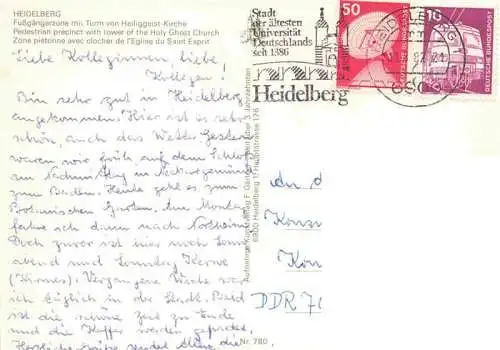 HEIDELBERG
Fußgängerzone mit Turm von Heiliggeist-Kirche
Pedestrian precinct with tower of the Holy Ghost Church
Zone piétonne avec clocher de l'Eglise du Saint Esprit
Liebe Kolleginnen, liebe
Kollegen!
Bin sehr gut in Heidelberg
angekommen. Hier ist es sehr
schön, auch das Wetter. Gestern
waren wir früh auf dem Schloß
am Nachmittag in
zum Baden. Heute geht es zum
Botanischen Garten. Am Montag
fahre ich dann nach Northeim
Doch zuvor ist hier noch Sonn
abend und Sonntag Kerwe
(Kirmes). Vergangene Woche war
ich täglich in der Stadt. Bald
ist die schöne Zeit zu Ende
und die Koffer werden gepackt.
Herzliche Grüße sendet die
Stadt
der ältesten
Universität
Deutschlands
seit 1386
Heidelberg
50
DEUTSCHE BUNDESPOST
10
DEUTSCHE BUNDESPOST
HEIDELBERG 1
6900 Heidelberg 1, Hauptstrasse 176
An d
Konsu
Kon
DDR 71
Nr. 780